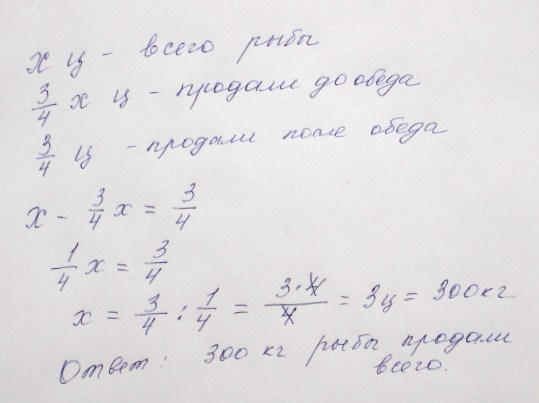 x ц - всего рыбы
3/4 x ц - продали до обеда
3/4 ц - продали после обеда
x - 3/4 x = 3/4
1/4 x = 3/4
x = 3/4 : 1/4 = 3·4/4 = 3ц = 300кг
Ответ: 300 кг рыбы продали
всего.